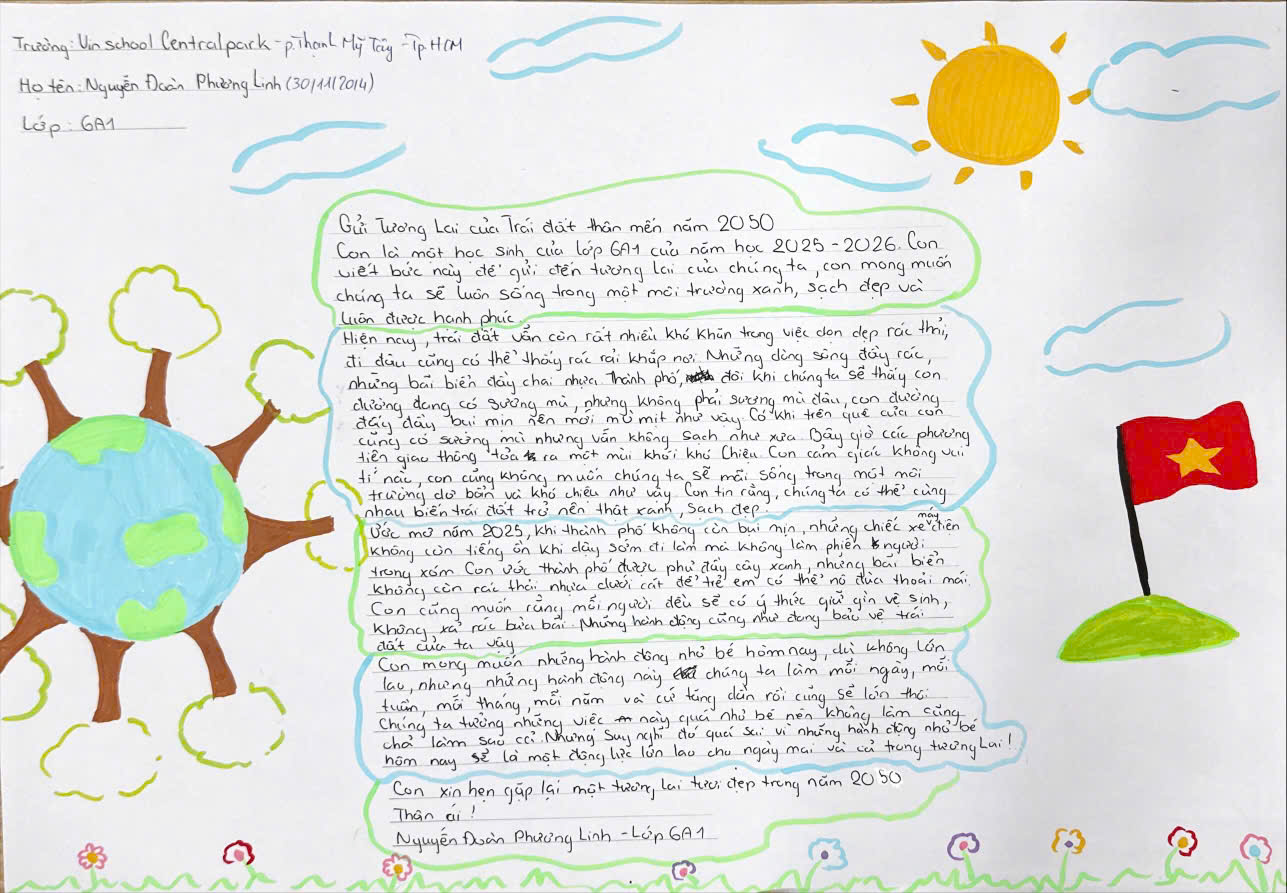 Trường: Vinschool Centralpark - p.Thạnh Mỹ Tây - Tp.HCM
Họ tên: Nguyễn Đoàn Phương Linh (30/11/2014)
Lớp: 6A1
Gửi Tương Lai của Trái đất thân mến năm 2050
Con là một học sinh của lớp 6A1 của năm học 2025 - 2026. Con
viết bức này để gửi đến tương lai của chúng ta, con mong muốn
chúng ta sẽ luôn sống trong một môi trường xanh, sạch đẹp và
luôn được hạnh phúc.
Hiện nay, trái đất vẫn còn rất nhiều khó khăn trong việc dọn dẹp rác thải,
đi đâu cũng có thể thấy rác rải khắp nơi. Những dòng sông đầy rác,
những bãi biển đầy chai nhựa. Thành phố, đôi khi chúng ta sẽ thấy con
đường đang có sương mù, nhưng không phải sương mù đâu, con đường
đấy đầy bụi mịn nên mới mù mịt như vậy. Có khi trên quê của con
cũng có sương mù nhưng vẫn không sạch như xưa. Bây giờ các phương
tiện giao thông tỏa ra một mùi khói khó chiệu. Con cảm giác không vui
tí nào, con cũng không muốn chúng ta sẽ mãi sống trong một môi
trường dơ bẩn và khó chiệu như vậy. Con tin rằng, chúng ta có thể cùng
nhau biến trái đất trở nên thật xanh, sạch đẹp.
Ước mơ năm 2025, khi thành phố không còn bụi mịn, những chiếc xe máy điện
không còn tiếng ồn khi dậy sớm đi làm mà không làm phiền người
trong xóm. Con ước thành phố được phủ đầy cây xanh, những bãi biển
không còn rác thải nhựa dưới cát để trẻ em có thể nô đùa thoải mái.
Con cũng muốn rằng mỗi người đều sẽ có ý thức giữ gìn vệ sinh,
không xả rác bừa bãi. Những hành động cũng như đang bảo vệ trái
đất của ta vậy
Con mong muốn những hành động nhỏ bé hôm nay, dù không lớn
lao, nhưng những hành động này chúng ta làm mỗi ngày, mỗi
tuần, mỗi tháng, mỗi năm và cứ tăng dần rồi cũng sẽ lớn thôi.
Chúng ta tưởng những việc này quá nhỏ bé nên không làm cũng
chả làm sao cả. Nhưng suy nghĩ đó quá sai vì những hành động nhỏ bé
hôm nay sẽ là một động lực lớn lao cho ngày mai và cả trong tương Lai!
Con xin hẹn gặp lại một tương lai tươi đẹp trong năm 2050
Thân ái!
Nguyễn Đoàn Phương Linh - Lớp 6A1